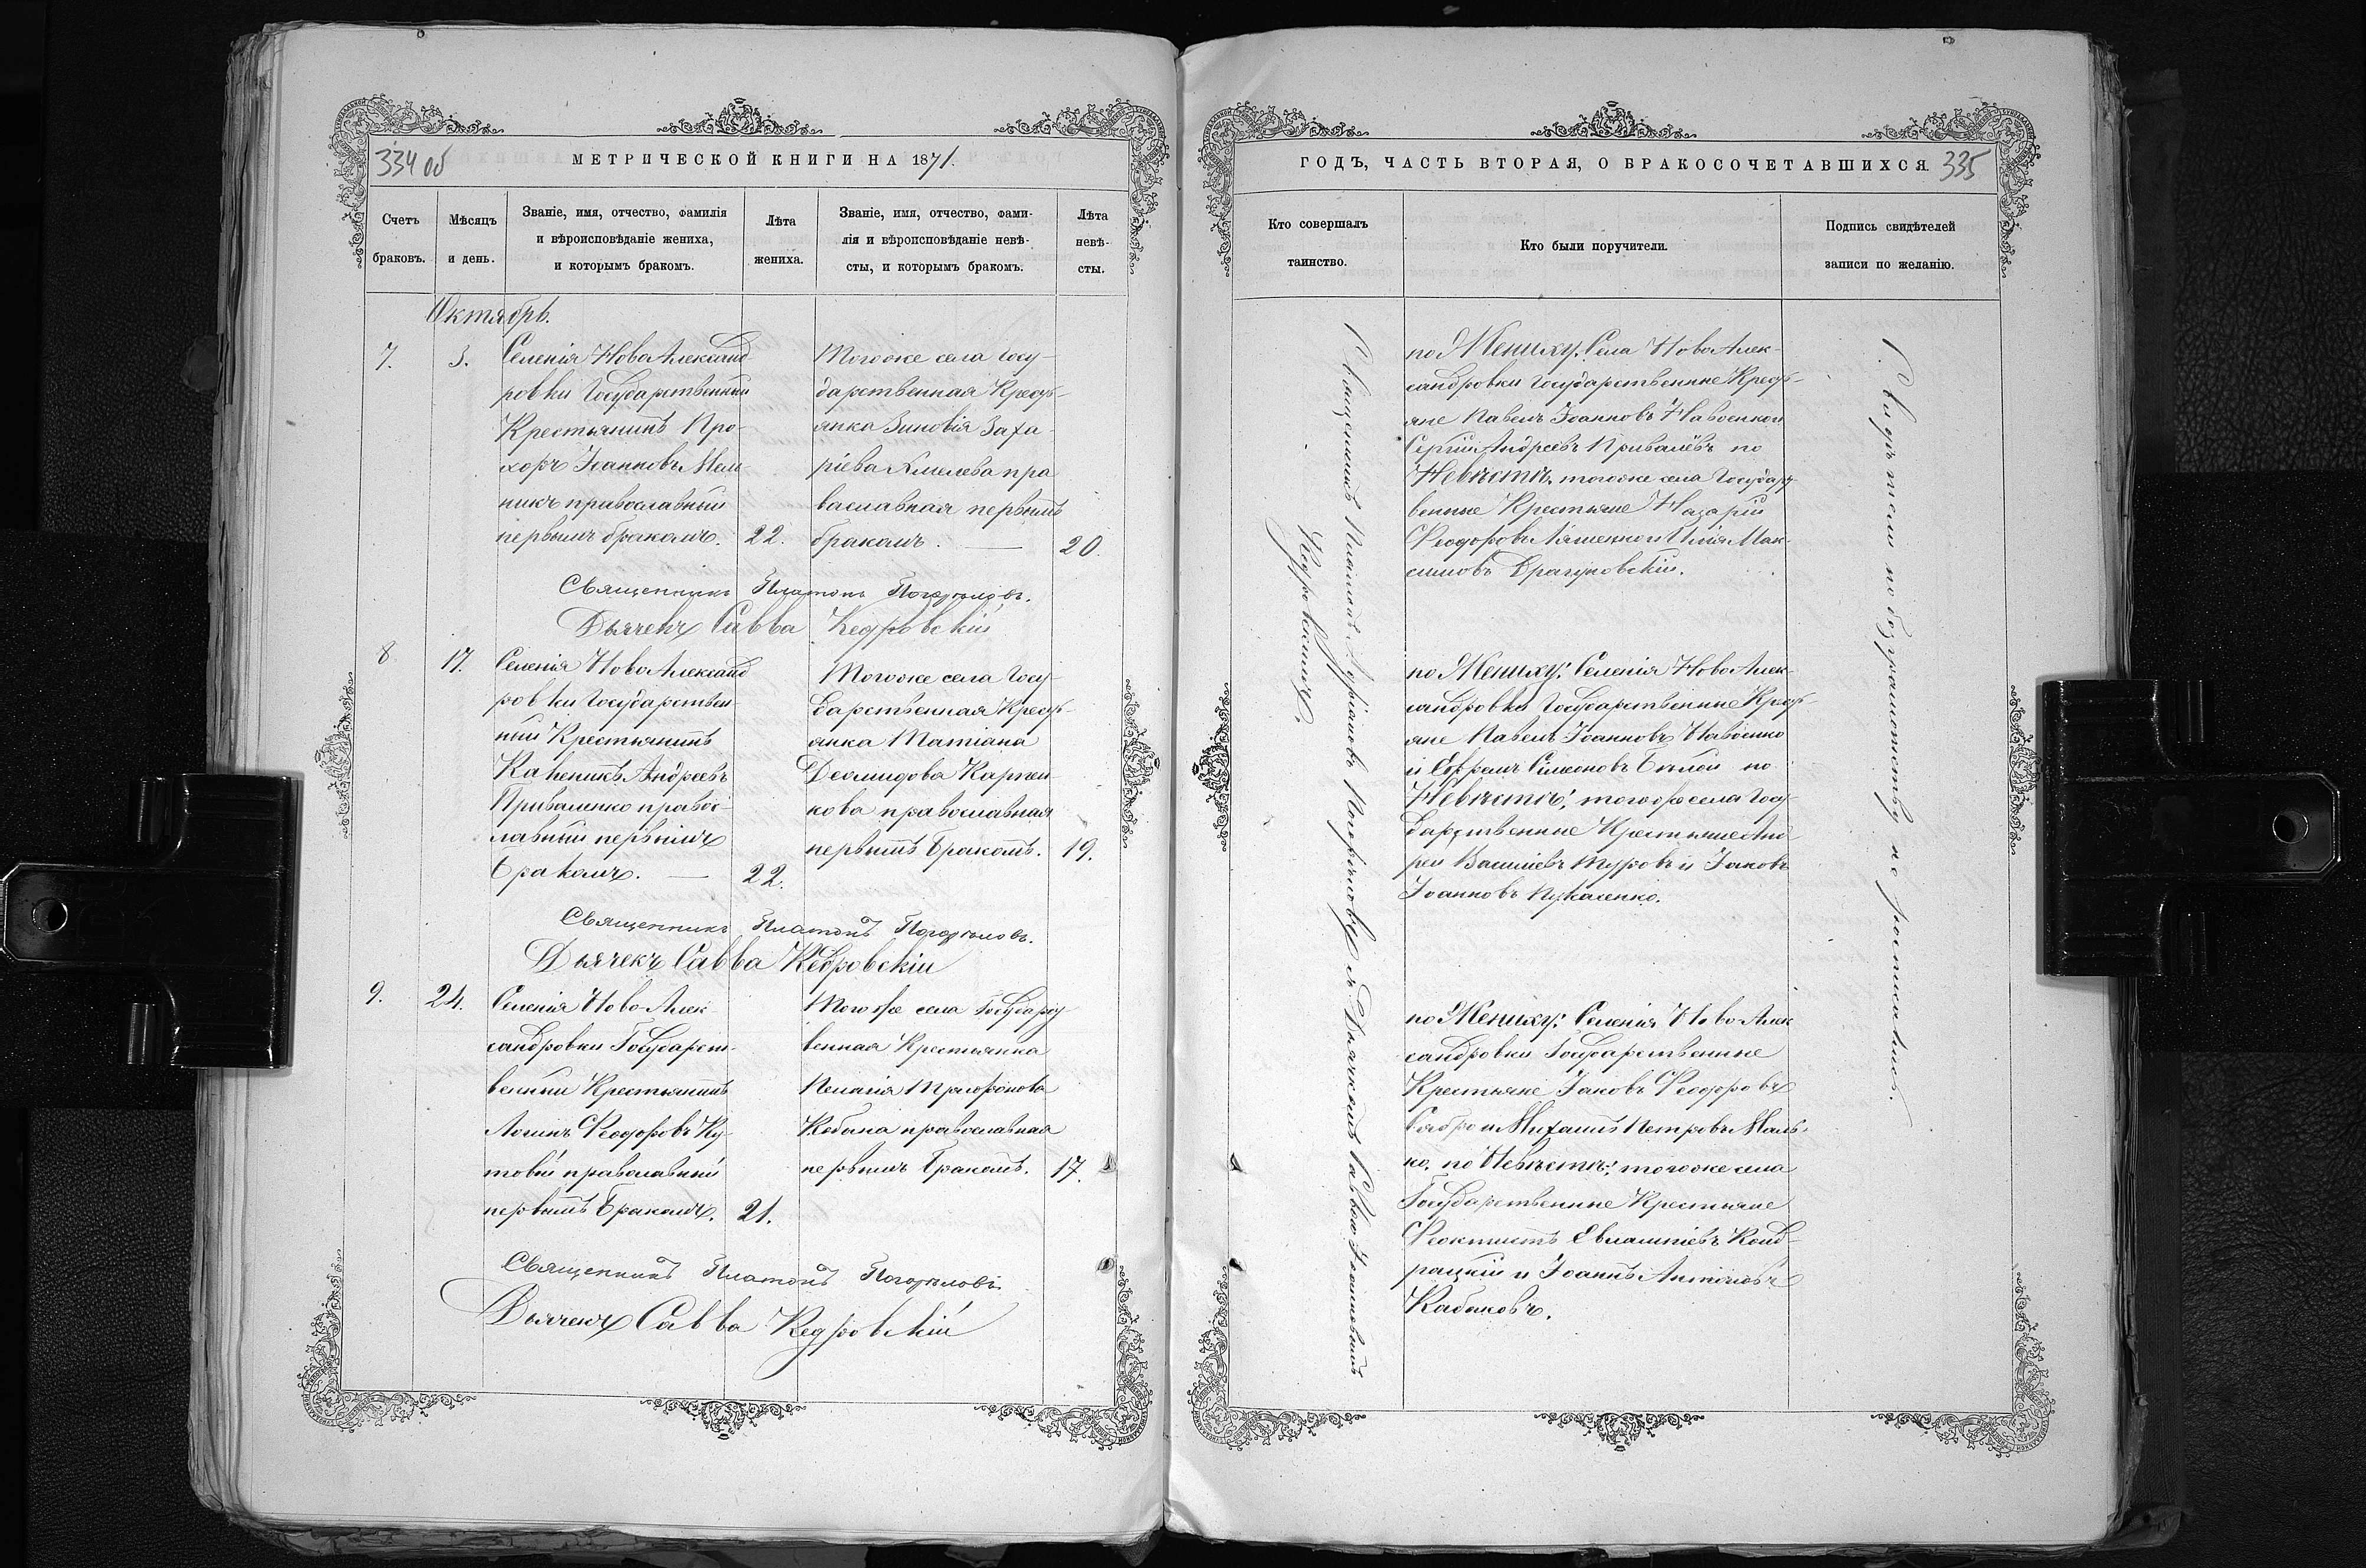 334 об
МЕТРИЧЕСКОЙ КНИГИ НА 1871.
Счетъ
браковъ.
Мѣсяцъ
и день.
Званіе, имя, отчество, фамилія
и вѣроисповѣданіе жениха,
и которымъ бракомъ.
Лѣта
жениха.
Званіе, имя, отчество, фами-
лія и вѣроисповѣданіе невѣ-
сты, и которымъ бракомъ.
Лѣта
невѣ-
сты.
Октябрь.
7.
3.
Селенія Ново Александ
ровки Государственный
Крестьянинъ Про-
хоръ Іоанновъ Мель
никъ православный
первымъ бракомъ.
22.
Тогоже села Госу-
дарственная Крест-
янка Зиновія Заха-
ріева Хмелева пра
вославная первымъ
бракомъ. —
20.
Священникъ Платонъ Погорѣловъ.
Дьячекъ Савва Кедровскій
8
17.
Селенія Ново Александ
ровки Государствен
ный Крестьянинъ
Андреевъ
Приваленко правос-
лавный первымъ
бракомъ. —
22.
Тогоже села Госу-
дарственная Крест-
янка Татіана
Деомидова Карпен
кова православная
первымъ бракомъ.
19.
Священникъ Платонъ Погорѣловъ.
Дьячекъ Савва Кедровскій
9.
24.
Селенія Ново Алек-
сандровки Государст-
венный Крестьянинъ
Логинъ Феодоровъ Ку-
товый православный
первымъ бракомъ.
21.
Тогоже села Государст
венная Крестьянка
Пелагія Трифонова
Кобына православная
первымъ бракомъ.
17.
Священникъ Платонъ Погорѣловъ.
Дьячекъ Савва Кедровскій
ГОДЪ, ЧАСТЬ ВТОРАЯ, О БРАКОСОЧЕТАВШИХСЯ.
335
Кто совершалъ
таинство.
Кто были поручители.
Подпись свидѣтелей
записи по желанію.
Священникъ Платонъ Погорѣловъ съ Дьячкомъ Саввою Іоанновымъ
Кедровскимъ.
по Жениху: Села Ново Алек-
сандровки Государственные Крест-
яне Павелъ Іоанновъ Навоенко и
Сергій Андреевъ Привалёвъ по
Невѣстѣ, тогоже села Государст
венные Крестьяне Назарій
Феодоровъ Ляшенко и Илія Мак-
симовъ Драгуновскій.
по Жениху: Селенія Ново Алек-
сандровки Государственные Крест-
яне Павелъ Іоанновъ Навоенко
и Ефремъ Симеоновъ Бѣлой по
Невѣстѣ: тогоже села Госу-
дарственные Крестьяне Анд
рей Василіевъ Туровъ и Іаковъ
Іоанновъ Пукаленко.
по Жениху: Селенія Ново Алек
сандровки Государственные
Крестьяне Іаковъ Феодоровъ
Сябро и Михаилъ Петровъ Маль-
ко, по Невѣстѣ: тогоже села
Государственные Крестьяне
Феоктистъ Евлампіевъ Конд-
рацкій и Іоаннъ Антоновъ
Кабаковъ.
Свидѣтели по безграмотству не росписались.